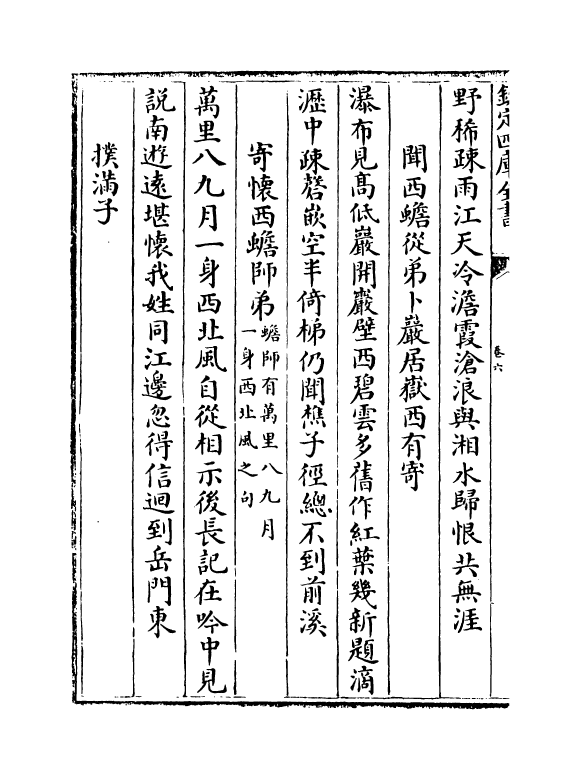 欽定四庫全書
卷六
野稀疎雨江天冷澹霞滄浪與湘水歸恨共無涯
聞西蟾從弟卜巖居嶽西有寄
瀑布見髙低巖開巖壁西碧雲多舊作紅葉幾新題滴
瀝中疎磬嵌空半倚梯仍聞樵子徑總不到前溪
寄懷西蟾師弟蟾師有萬里八九月
一身西北風之句
萬里八九月一身西北風自從相示後長記在吟中見
說南遊遠堪懷我姓同江邊忽得信迴到岳門東
撲滿子